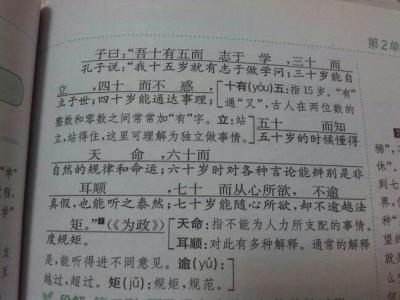 第2单
子曰:“吾十有五而 志于 学,三十 而
孔子说:“我十五岁就有志于做学问;三十岁能自
立,四十 而不 惑,
立于世;四十岁能通达事理;
十有(yòu)五:指15岁。“有”
通“又”,古人在两位数的
整数和零数之间常常加“有”字。立:站
立,站得住,这里可理解为独立做事情。
五十 而知
五十岁的时候懂得
天 命,六十而
自然的规律和命运;六十岁时对各种言论能辨别是非
耳顺 ,七十 而从心所欲, 不逾
真假,也能听之泰然;七十岁能随心所欲,却不逾越法
矩。”(《为政》)
度规矩。
天命:指不能为人力所支配的事情。
耳顺:对此有多种解释。通常的解释
是,能听得进不同意见。逾(yú):
越过,超过。矩(jǔ):规矩,规范。